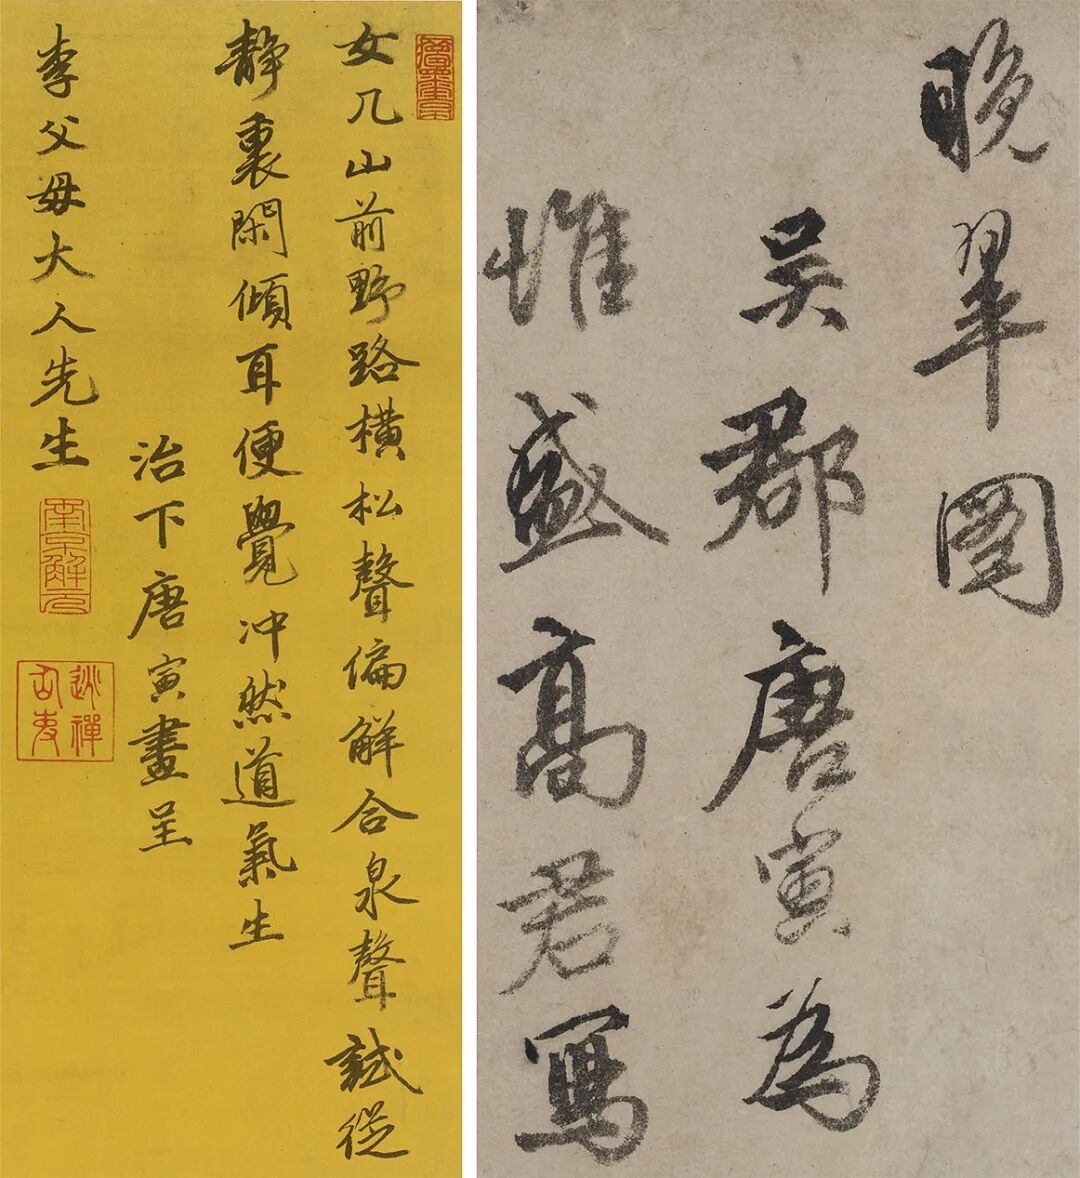 女几山前野路橫松聲偏解合泉聲試從
靜裏閑傾耳便覺冲然道氣生
治下唐寅畫呈
李父母大人先生
南京解元
逃禪仙吏
晚翠圖
吳郡唐寅為
惟盛高君寫